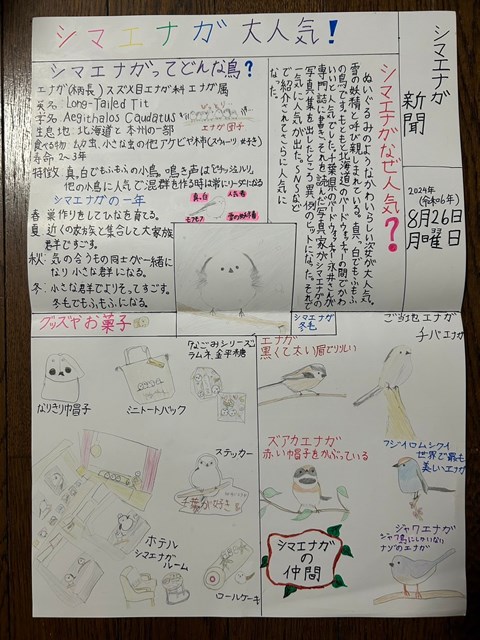 シマエナガ 大人気!
シマエナガ
新聞
2024年
(令和6年)
8月26日
月曜日
シマエナガってどんな鳥?
エナガ(柄長)スズメ目エナガ科エナガ属
英名: Long-Tailed Tit
学名: Aegithalos Caudatus
生息地: 北海道と本州の一部
エナガ団子
寿命 2~3年
特徴 真っ白でもふもふの小鳥。鳴き声は
他の鳥に人気で混群を作る時は常にリーダーになる
シマエナガの一年
春 巣作りをしてひなを育てる。
夏 近くの家族と集合して大家族
群ですごす。
秋: 気の合うもの同士が一緒に
なり小さな群になる。
冬: 小さな群でよりそってすごす。
冬毛でもふもふになる。
真っ白
人気者
もふもふ
雪の妖精
シマエナガなぜ人気?
ぬいぐるみのようなかわいらしい姿が大人気。
雪の妖精と呼び親しまれている。真っ白でもふもふ
の鳥です。もともと北海道のバードウォッチャーの間でかわ
いいと人気でした。千葉県のバードウォッチャー永井さんが
専門誌に書き、それを読んだ写真家がシマエナガの
写真集を出したところ異例の大ヒットになった。それで
一気に人気が出た。SNSなど
で紹介されてさらに人気に
なった。
シマエナガ
冬毛
グッズやお菓子
なりきり帽子
ミニトートバック
なごみシリーズ
ラムネ、金平糖
ステッカー
千葉が好き
ホテル
シマエナガ
ルーム
ロールケーキ
エナガ
黒くて太い眉でりりしい
ご当地エナガ
チバエナガ
ズアカエナガ
赤い帽子をかぶっている
フジイロムシクイ
世界で最も
美しいエナガ
シマエナガ
の
仲間
ジャワエナガ
ジャワ島にしかいない
ナゾのエナガ